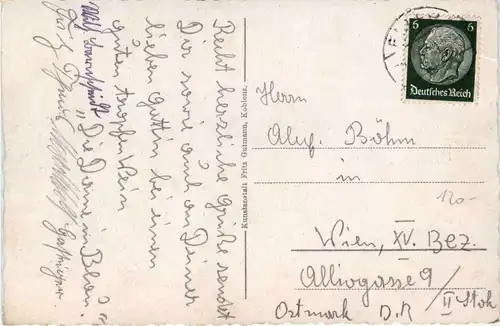 Recht herzliche Grüße sendet
Dir sowie auch an Deiner
lieben Gattin bei einem
guten tropfen Wein
"Die Dame in Blau."
Kunstanstalt Fritz Gutmann, Koblenz.
6 6
Deutsches Reich
Herrn
Aluf. Böhm
in
Wien, XV. Bez.
Alliogasse 9 / II Stok
Ostmark D.R
120.-